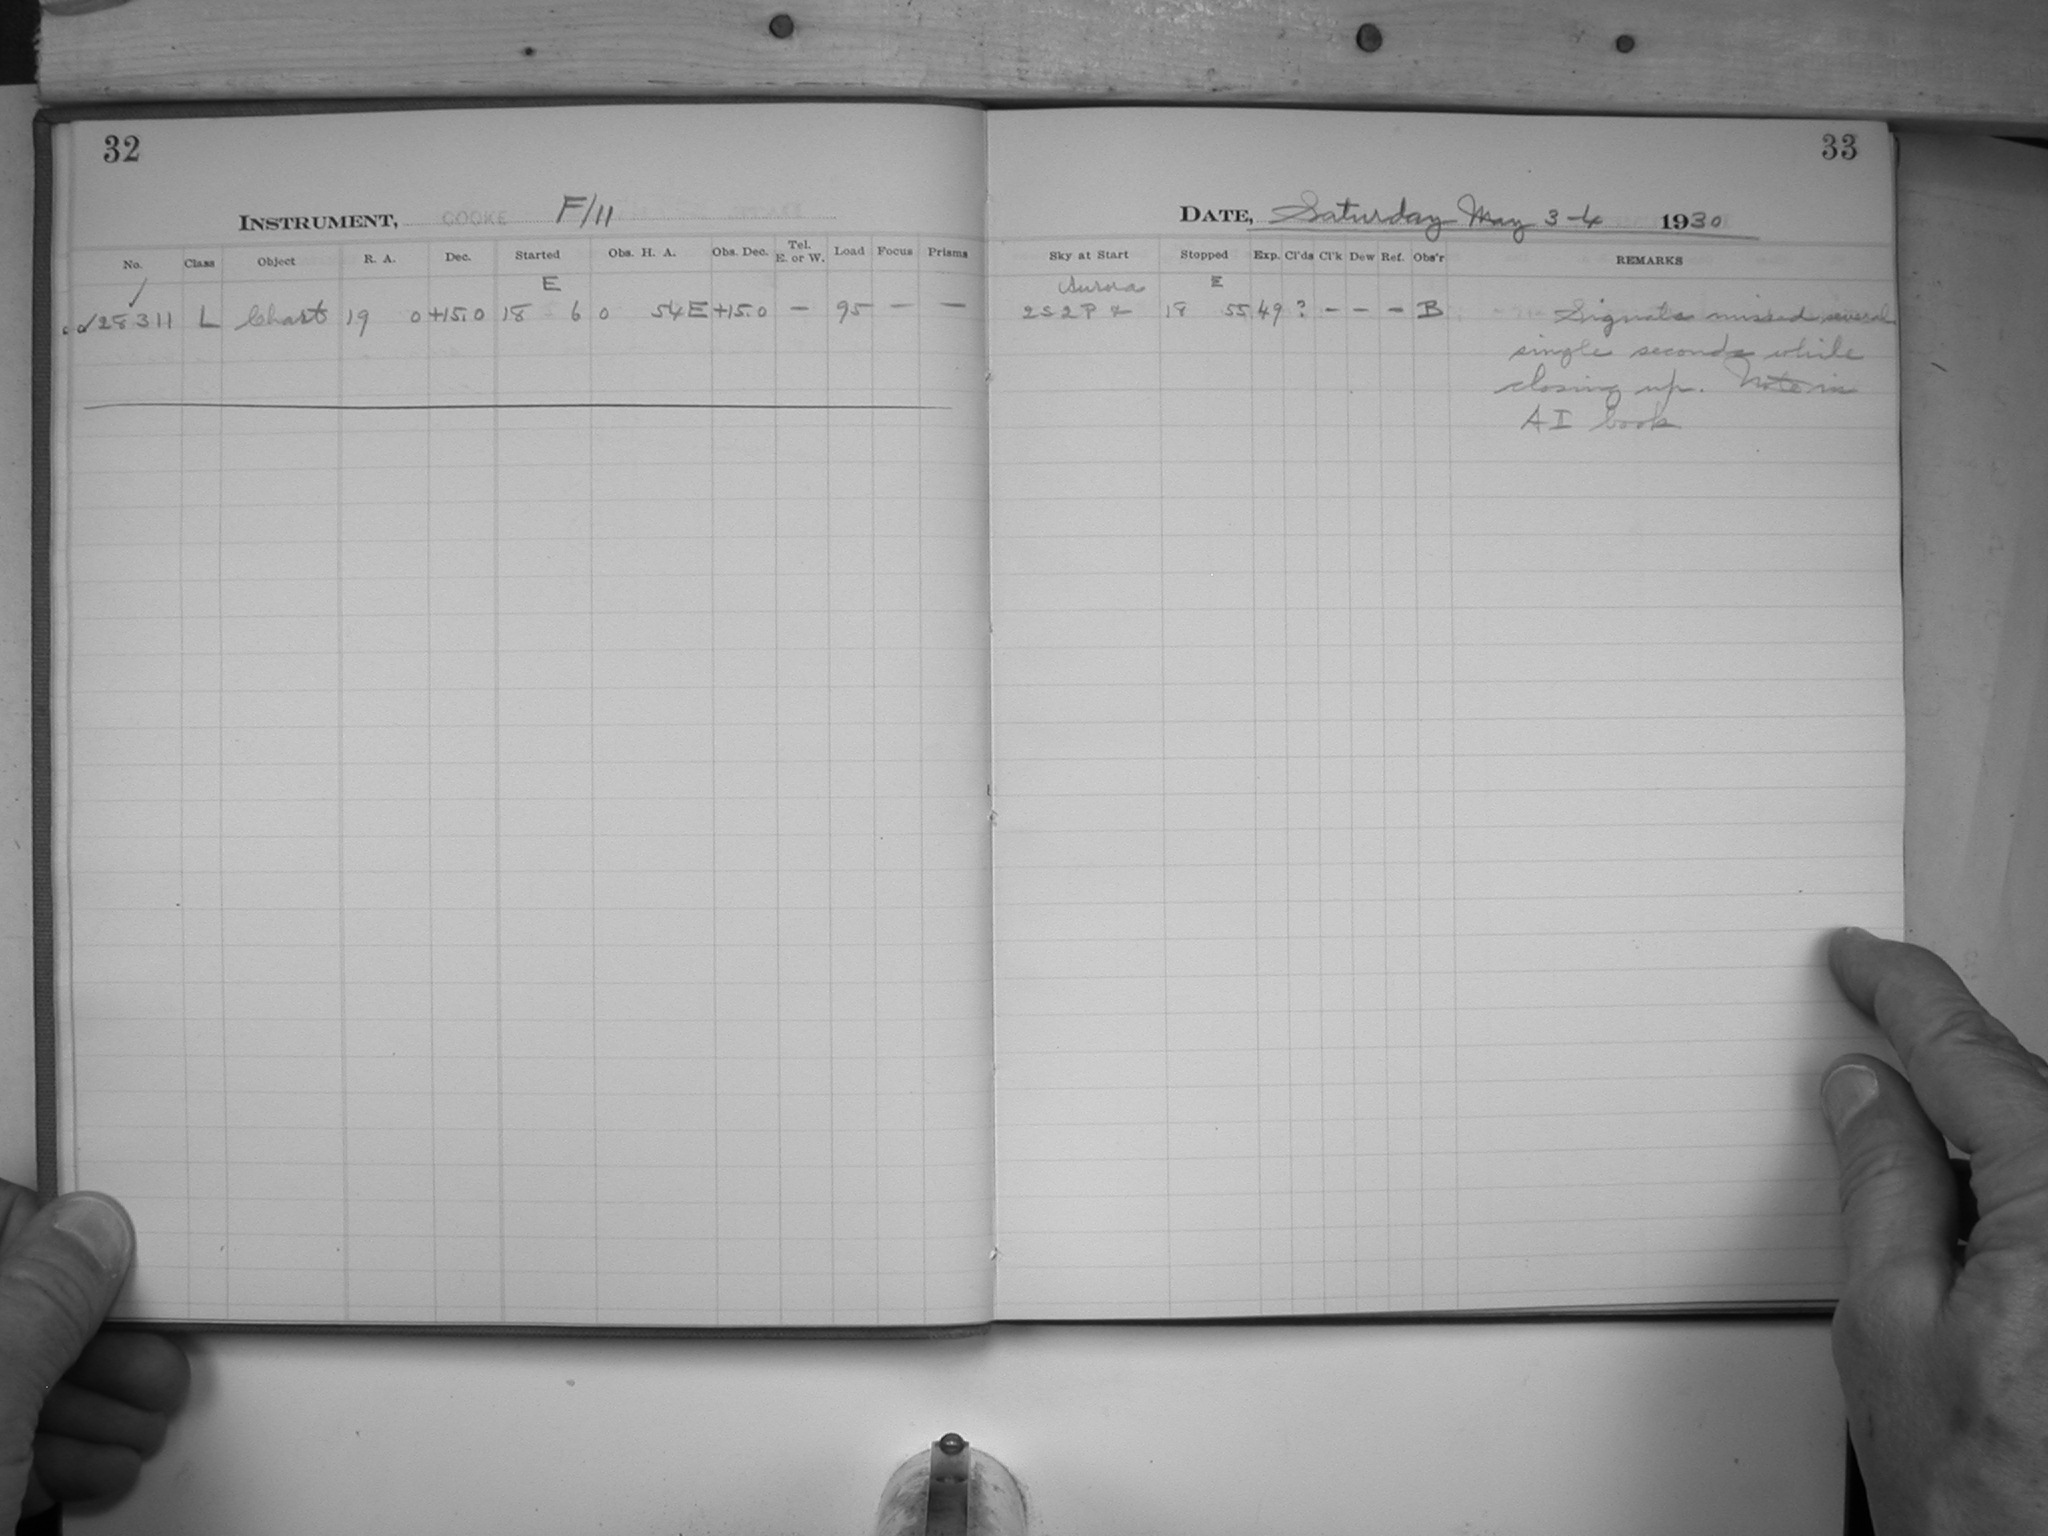 32
INSTRUMENT, COOKE F/11
No. Class Object R. A. Dec. Started Obs. H. A. Obs. Dec. Tel. E. or W. Load Focus Prisms
E
28311 L Chart 19 0 +15.0 18 6 0 54E +15.0 — 95 — —
33
DATE, Saturday May 3-4 1930
Sky at Start Stopped Exp. Cl'ds Cl'k Dew Ref. Obs'r REMARKS
Aurora E
2S2P 18 55 49 ? - - - B Signals missed several
single seconds while
closing up. Note in
A I book